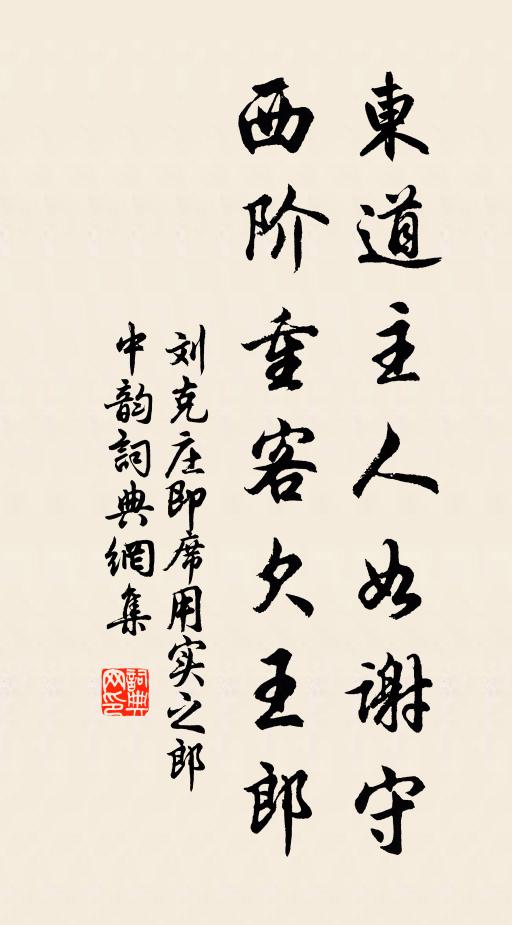 東道主人如谢守
西阶重客欠王郎
刘克庄即席用实之郎
中韵詞典網集
詞典网印